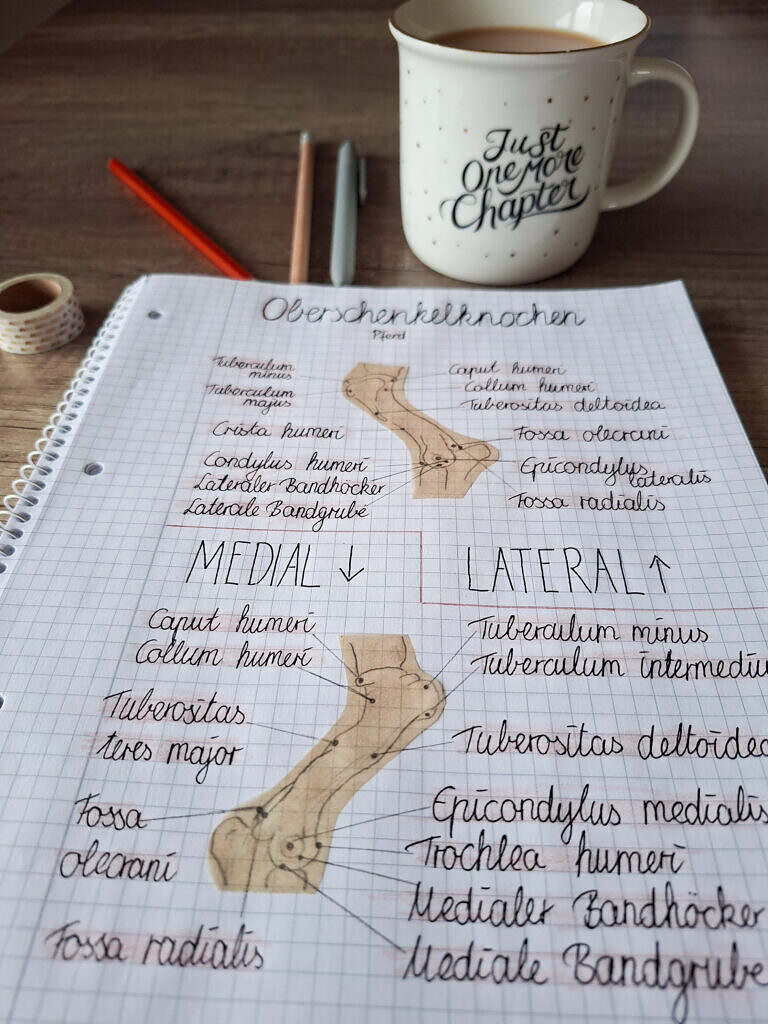 Just
One More
Chapter
Oberschenkelknochen
Pferd
Tuberculum
minus
Tuberculum
majus
Crista humeri
Condylus humeri
Lateraler Bandhöcker
Laterale Bandgrube
Caput humeri
Collum humeri
Tuberositas deltoidea
Fossa olecrani
Epicondylus
lateralis
Fossa radialis
MEDIAL ↓
LATERAL ↑
Caput humeri
Collum humeri
Tuberositas
teres major
Fossa
olecrani
Fossa radialis
Tuberculum minus
Tuberculum intermediu
Tuberositas deltoidea
Epicondylus medialis
Trochlea humeri
Medialer Bandhöcker
Mediale Bandgrube